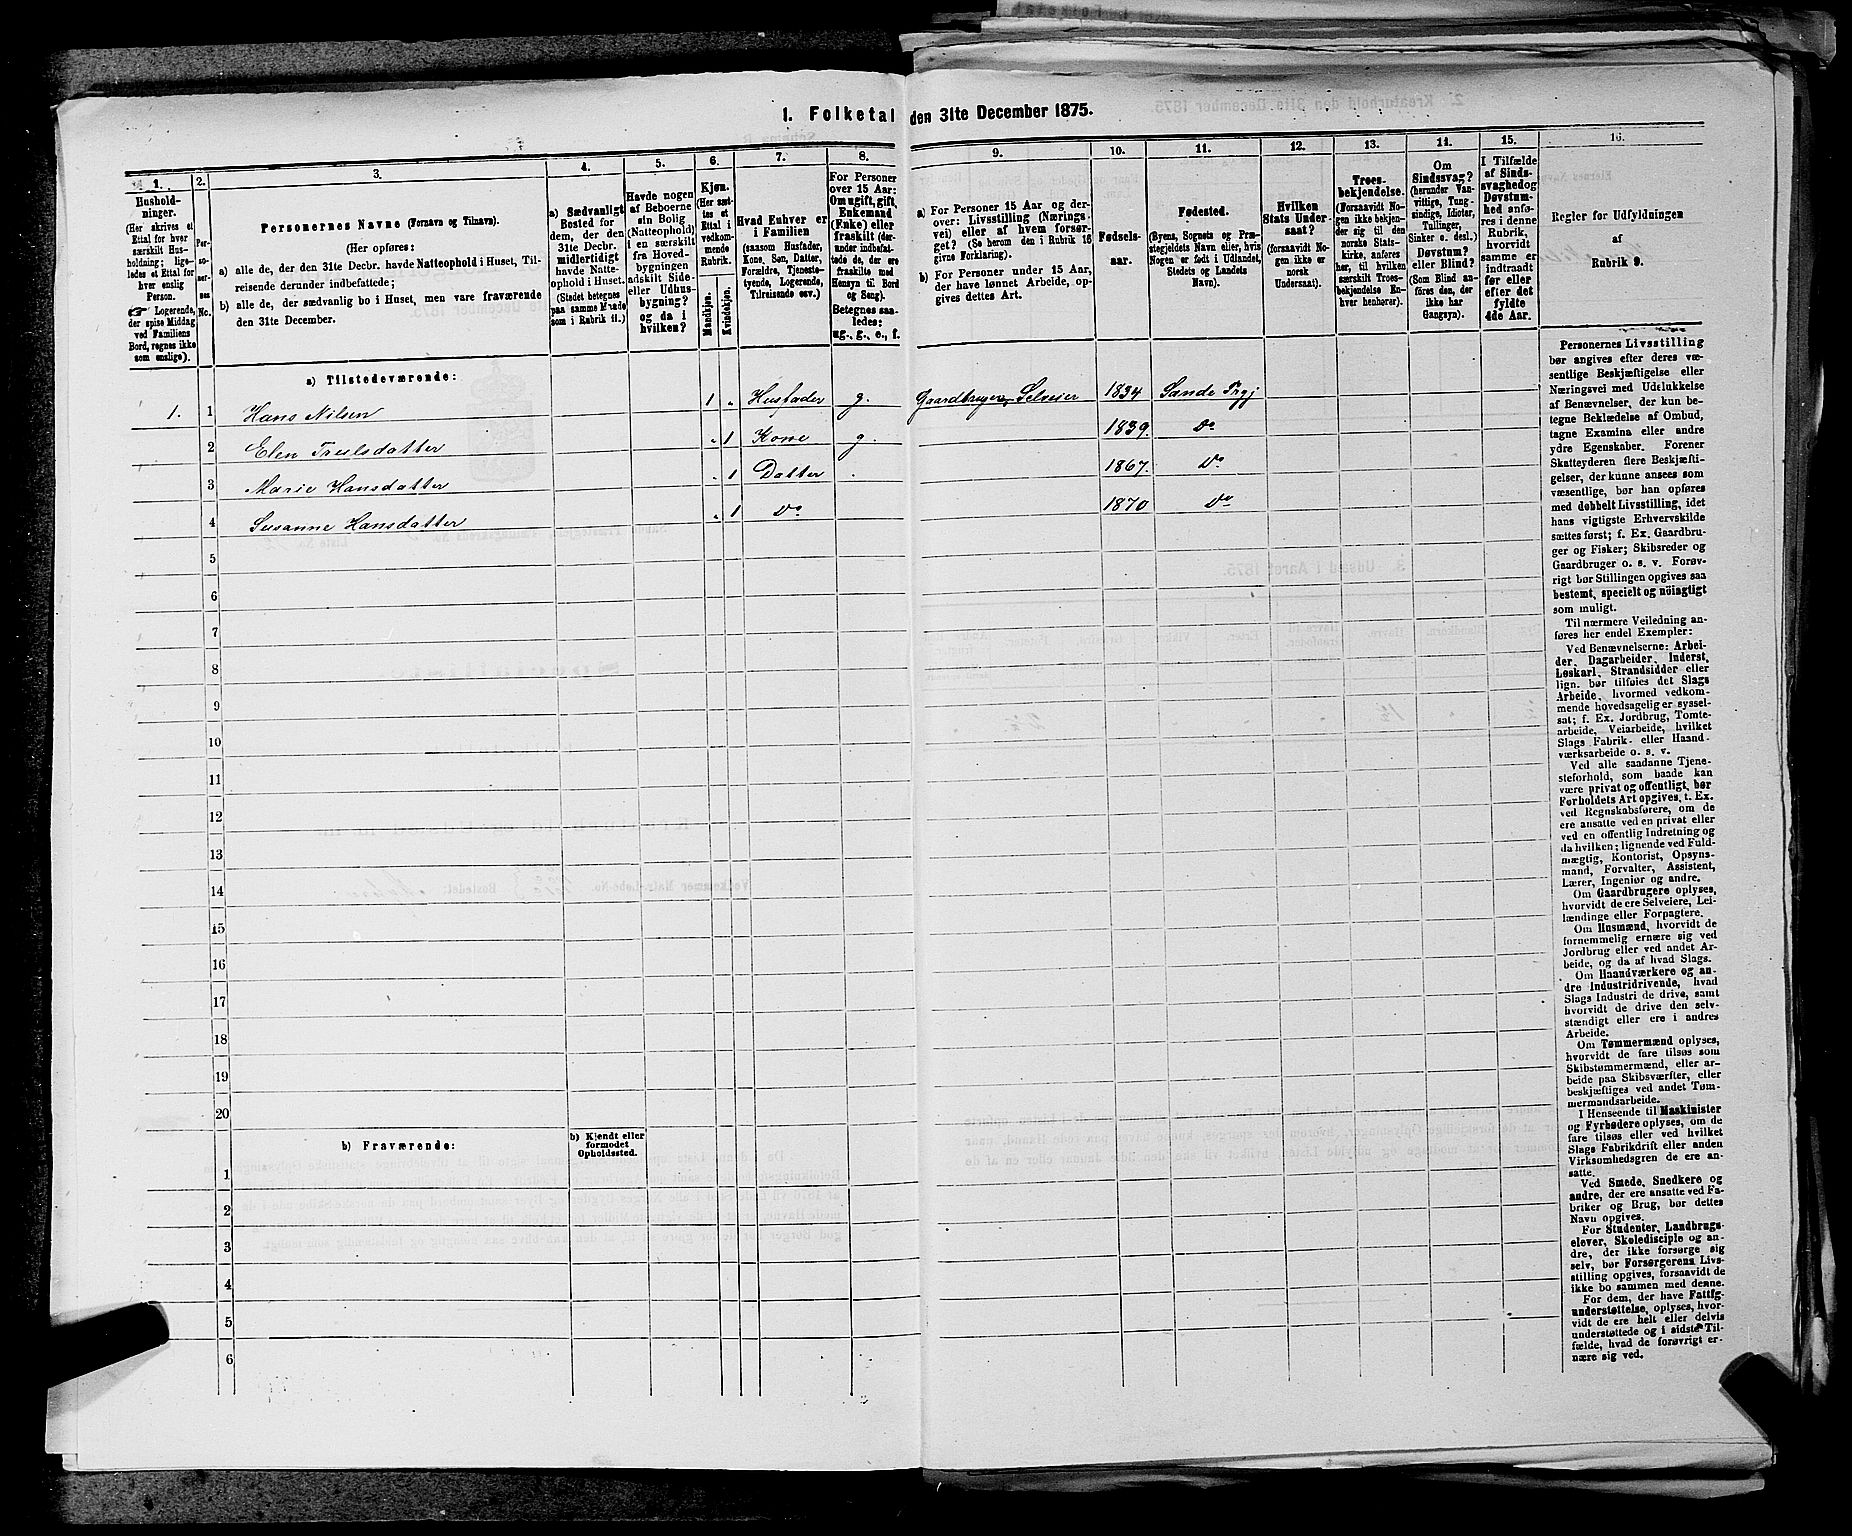 1. Folketal den 31te December 1875.
1.
2.
3.
4.
5.
6.
7.
8.
9.
10.
11.
12.
13.
14.
15.
16.
Hushold-
ninger.
(Her skrives et
Ettal for hver
særskilt Hus-
holdning; lige-
ledes et Ettal for
hver enslig
Person.
☞ Logerende,
der spise Middag
ved Familiens
Bord, regnes ikke
som enslige).
Per-
so-
ner-
nes
No.
Personernes Navne (Fornavn og Tilnavn).
(Her opføres:
a) alle de, der den 31te Decbr. havde Natteophold i Huset, Til-
reisende derunder indbefattede;
b) alle de, der sædvanlig bo i Huset, men vare fraværende
den 31te December.
a) Sædvanligt
Bosted for
dem, der den
31te Decbr.
midlertidigt
havde Natte-
ophold i Huset.
(Stedet betegnes
paa samme Maade
som i Rubrik 11.)
Havde nogen
af Beboerne
sin Bolig
(Natteophold)
i en særskilt
fra Hoved-
bygningen
adskilt Side-
eller Udhus-
bygning?
og da i
hvilken?
Kjøn.
(Her sæt-
tes et
Ettal i
vedkom-
mende
Rubrik.
Mandkjøn.
Kvindekjøn.
Hvad Enhver er
i Familien
(saasom Husfader,
Kone, Søn, Datter,
Forældre, Tjeneste-
tyende, Logerende,
Tilreisende osv.)
For Personer
over 15 Aar:
Om ugift, gift,
Enkemand
(Enke) eller
fraskilt (der-
under indbefat-
tede de, der ere
fraskilte med
Hensyn til Bord
og Seng).
Betegnes saa-
ledes:
ug., g., e., f.
a) For Personer 15 Aar og der-
over: Livsstilling (Nærings-
vei) eller af hvem forsør-
get? (Se herom den i Rubrik 16
givne Forklaring).
b) For Personer under 15 Aar,
der have lønnet Arbeide, op-
gives dettes Art.
Fødsels-
aar.
Fødested.
(Byens, Sognets og Præ-
stegjeldets Navn eller, hvis
Nogen er født i Udlandet,
Stedets og Landets
Navn).
Hvilken
Stats Under-
saat?
(forsaavidt No-
gen ikke er
norsk
Undersaat).
Troes-
bekjendelse.
(Forsaavidt No-
gen ikke bekjen-
der sig til den
norske Stats-
kirke, anføres
her, til hvilken
særskilt Troes-
bekjendelse En-
hver henhører).
Om
Sindssvag?
(herunder Van-
vittige, Tung-
sindige, Idioter,
Tullinger,
Sinker o. desl.)
Døvstum?
eller Blind?
(Som Blind an-
føres den, der
ikke har
Gangsyn).
I Tilfælde
af Sinds-
svaghed og
Døvstum-
hed anfø-
res i denne
Rubrik,
hvorvidt
samme er
indtraadt
før eller
efter det
fyldte
4de Aar.
Regler for Udfyldningen
af
Rubrik 9.
a) Tilstedeværende:
1. 1 Hans Nilsen 1 „ Husfader g. Gaardbruger Selveier 1834 Sande Prgj
2 Elen Truelsdatter „ 1 Kone g. 1839. Do
3 Marie Hansdatter „ 1 Datter . 1867. Do
4 Susanne Hansdatter „ 1 Do 1870 Do
5
6
7
8
9
10
11
12
13
14
15
16
17
18
19
20
b) Fraværende:
b) Kjendt eller
formodet
Opholdssted.
1
2
3
4
5
6
Personernes Livsstilling
bør angives efter deres væ-
sentlige Beskjæftigelse eller
Næringsvei med Udelukkelse
af Benævnelser, der kun be-
tegne Beklædelse af Ombud,
tagne Examina eller andre
ydre Egenskaber. Forener
Skatteyderen flere Beskjæfti-
gelser, der kunne ansees som
væsentlige, bør han opføres
med dobbelt Livsstilling, idet
hans vigtigste Erhvervskilde
sættes først; f. Ex. Gaardbru-
ger og Fisker; Skibsreder og
Gaardbruger o. s. v. Forøv-
rigt bør Stillingen opgives saa
bestemt, specielt og nöiagtigt
som muligt.
Til nærmere Veiledning an-
føres her endel Exempler:
Ved Benævnelserne: Arbei-
der, Dagarbeider, Inderst,
Løskarl, Strandsidder eller
lign. bør tilføies det Slags
Arbeide, hvormed vedkom-
mende hovedsagelig er syssel-
sat; f. Ex. Jordbrug, Tomte-
arbeide, Veiarbeide, hvilket
Slags Fabrik- eller Haand-
værksarbeide o. s. v.
Ved alle saadanne Tjene-
steforhold, som baade kan
være privat og offentligt, bør
Forholdets Art opgives, t. Ex.
ved Regnskabsførere, om de
ere ansatte ved en privat eller
ved en offentlig Indretning og
da hvilken; lignende ved Fuld-
mægtig, Kontorist, Opsyns-
mand, Forvalter, Assistent,
Lærer, Ingeniør og andre.
Om Gaardbrugere oplyses,
hvorvidt de ere Selveiere, Lei-
lændinge eller Forpagtere.
Om Husmænd, hvorvidt de
fornemmelig ernære sig ved
Jordbrug eller ved andet Ar-
beide, og da af hvad Slags.
Om Haandværkere og an-
dre Industridrivende, hvad
Slags Industri de drive, samt
hvorvidt de drive den selv-
stændigt eller ere i andres
Arbeide.
Om Tømmermænd oplyses,
hvorvidt de fare tilsøs som
Skibstømmermænd, eller ar-
beide paa Skibsværfter, eller
beskjæftiges ved andet Tøm-
mermandsarbeide.
I Henseende til Maskinister
og Fyrbødere oplyses, om de
fare tilsøs eller ved hvilket
Slags Fabrikdrift eller anden
Virksomhedsgren de ere an-
satte.
Ved Smede, Snedkere og
andre, der ere ansatte ved Fa-
briker og Brug, bør dettes
Navn opgives.
For Studenter, Landbrugs-
elever, Skoledisciple og an-
dre, der ikke forsørge sig
selv, bør Forsørgerens Livs-
stilling opgives, forsaavidt de
ikke bo sammen med denne.
For dem, der have Fattig-
understøttelse, oplyses, hvor-
vidt de ere helt eller delvis
understøttede og i sidste Til-
fælde, hvad de forøvrigt er-
nære sig ved.